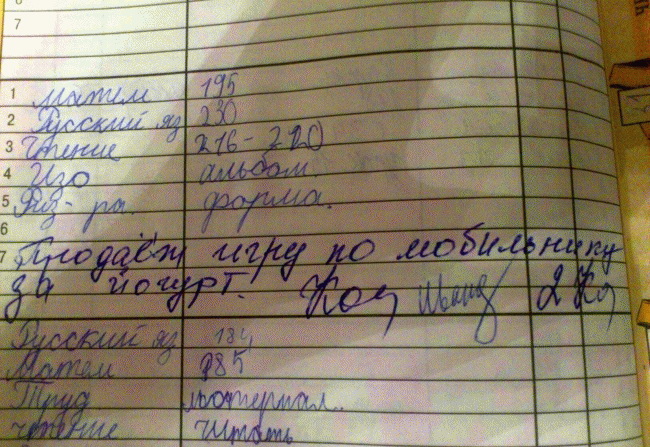 7
1 матем 195
2 Русский яз 230
3 Чтение 216-220
4 Изо альбом.
5 Физ-ра. форма.
6
7 Продаёж игру по мобильнику
за йогурт.
Русский яз 184
Матем 185
Труд материал..
чтение читать